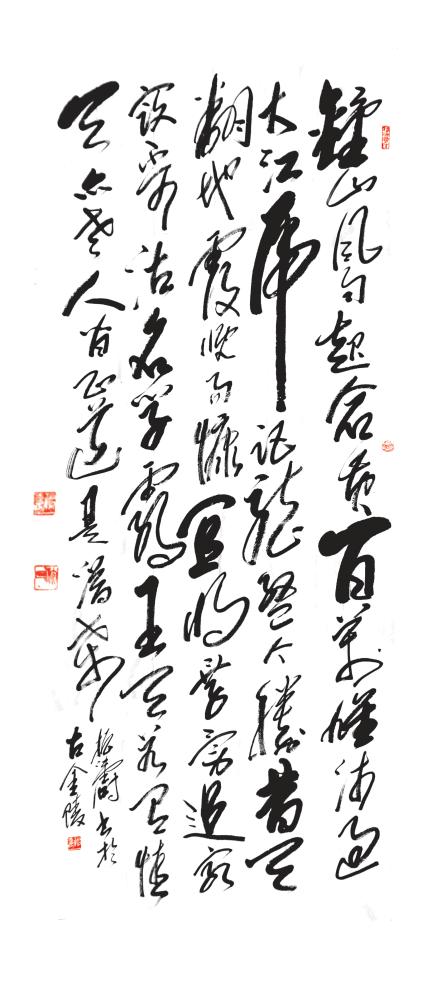 鐘山风雨起苍黄百万雄师过
大江虎踞龙盘今胜昔天
翻地覆慨而慷宜将剩勇追穷
寇不可沽名学霸王天若有情
天亦老人间正道是沧桑
振濤书於
古金陵